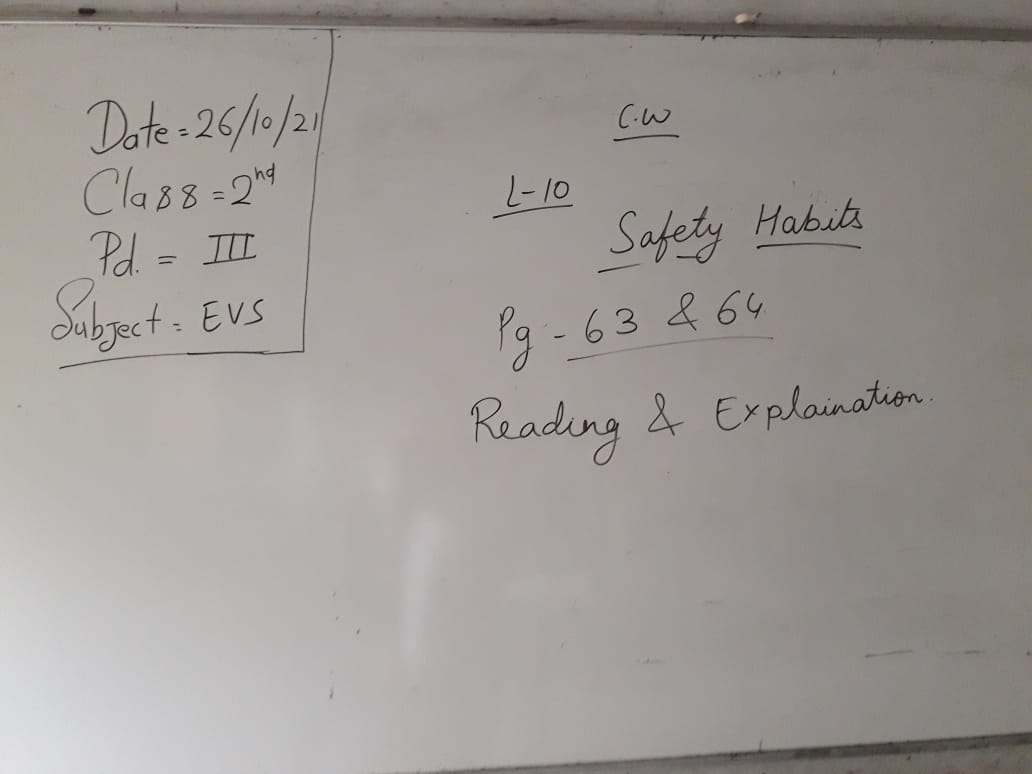 Date = 26/10/21
Class = 2nd
Pd. = III
Subject = EVS
C.W
L-10
Safety Habits
Pg - 63 & 64
Reading & Explaination.